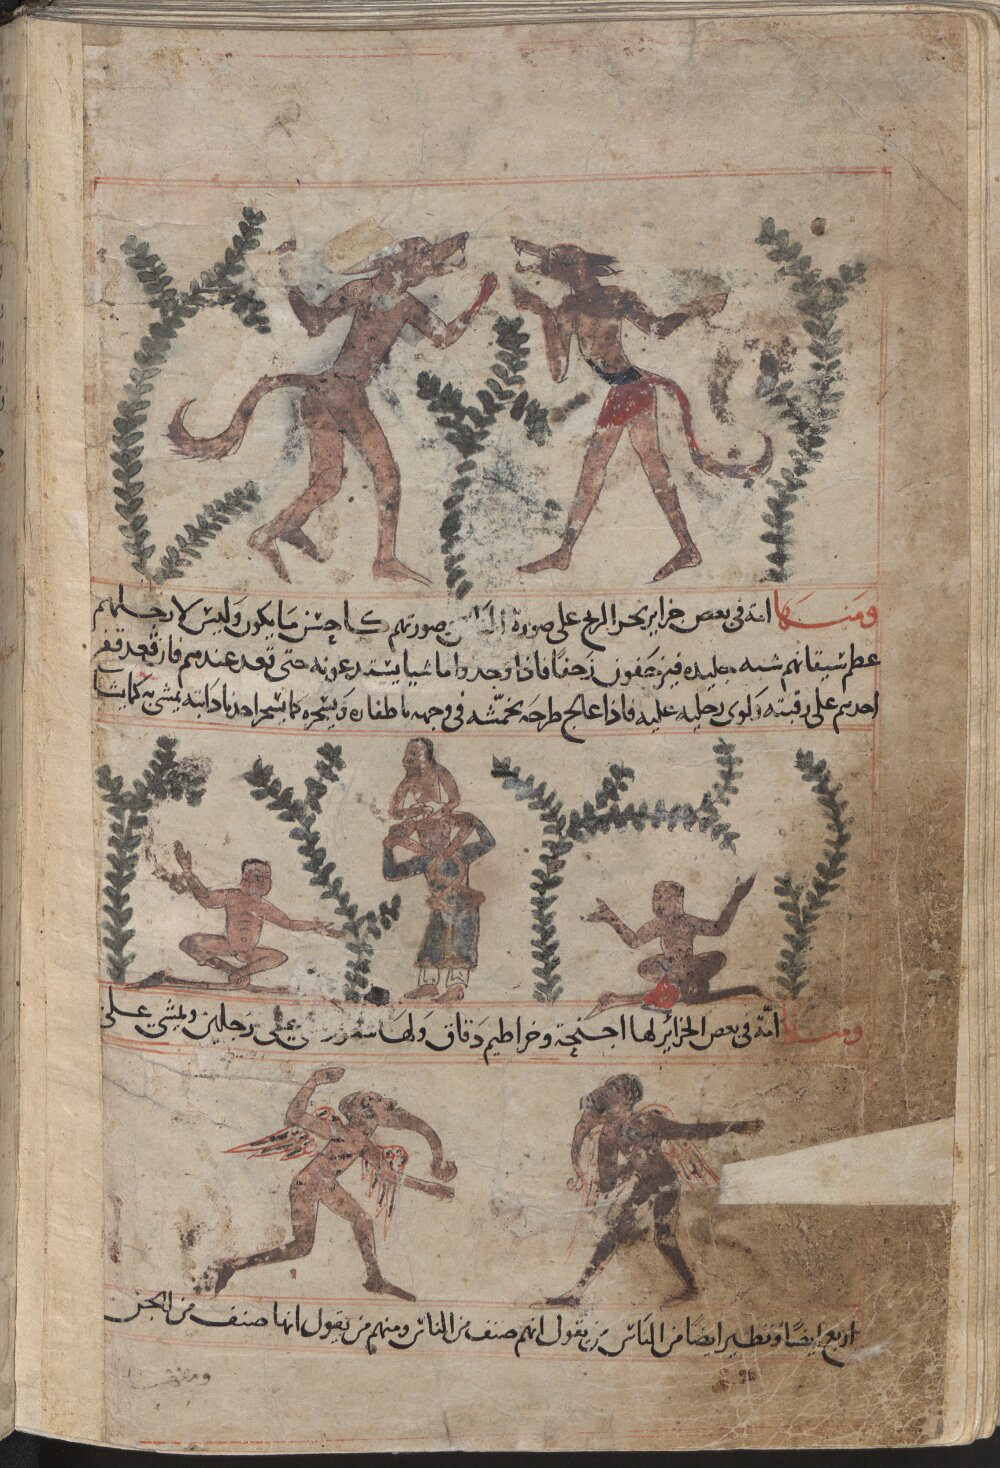 ومنها امة فى بعض جزاير بحر الزنج على صورة الناس صورتهم كاحسن ما يكون وليس لارجلهم
عظم سيقانهم شبه جليده فيزحفون زحفا فاذا وجدوا ماشيا يستدعونه حتى تقعد عندهم فاز قعد قفز
احدهم على رقبته ولوى رجليه عليه فاذا عالج طرحه خمشه فى وجهه باظفاره ويسخره كما يسخر احدنا دابته يمشى به كما يشا
ومنها امة فى بعض الجزائر لها اجنحة وخراطيم دقاق ولها على رجلين ويمشى على
اربع ايضا وتطير ايضا من الناس من يقول انهم صنف من الناس ومنهم من يقول انها صنف من الجن
ومنهم